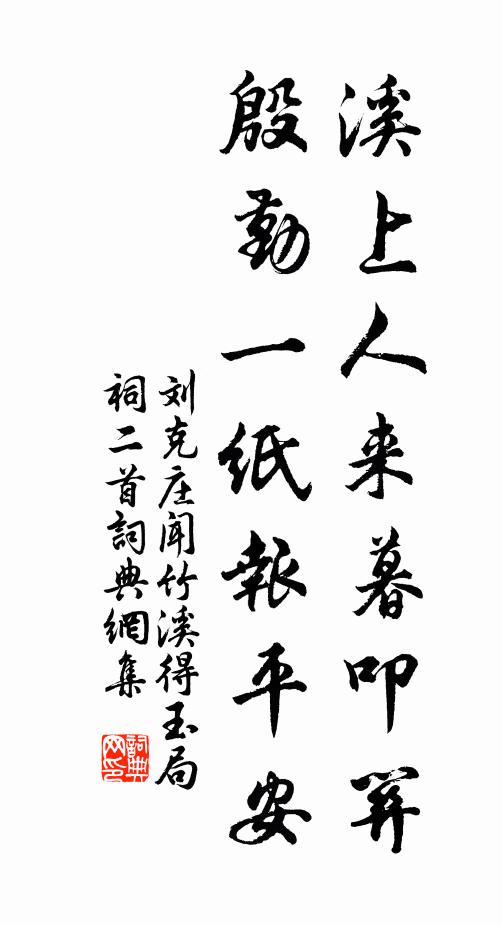 溪上人来暮叩關
殷勤一紙報平安
刘克庄闻竹溪得玉局
祠二首詞典網集
詞典
网印